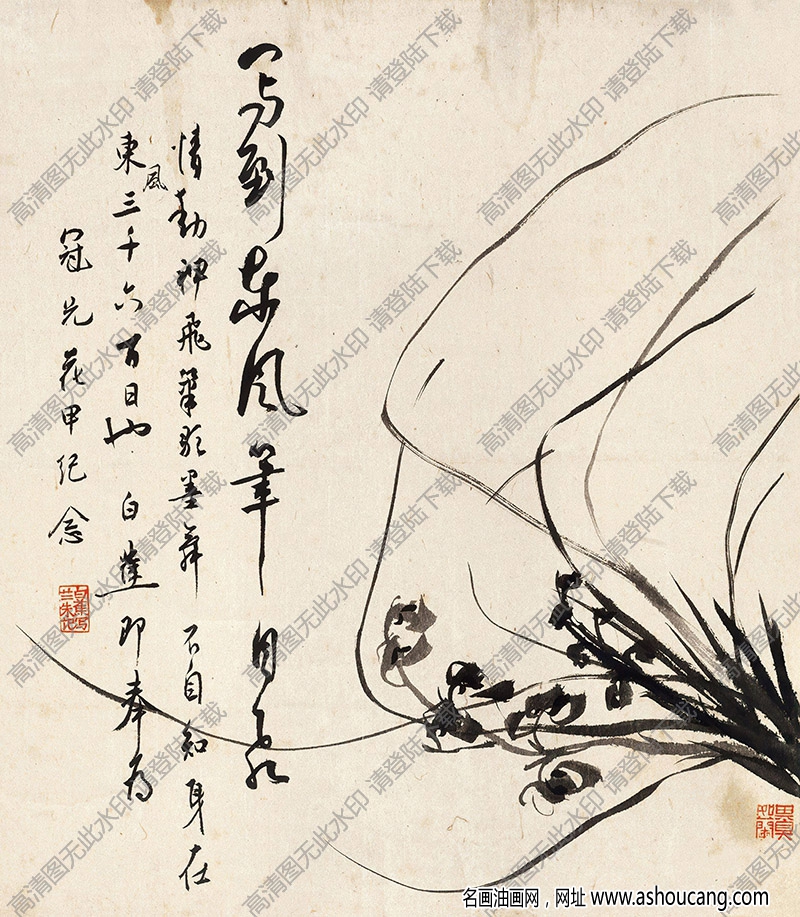 写到东风筆自柔
情動神飛筆歌墨舞不自知身在
東風三千六百日也 白蕉即奉为
冠先花甲纪念
高清图无此水印 请登陆下载
名画油画网，网址 www.ashoucang.com